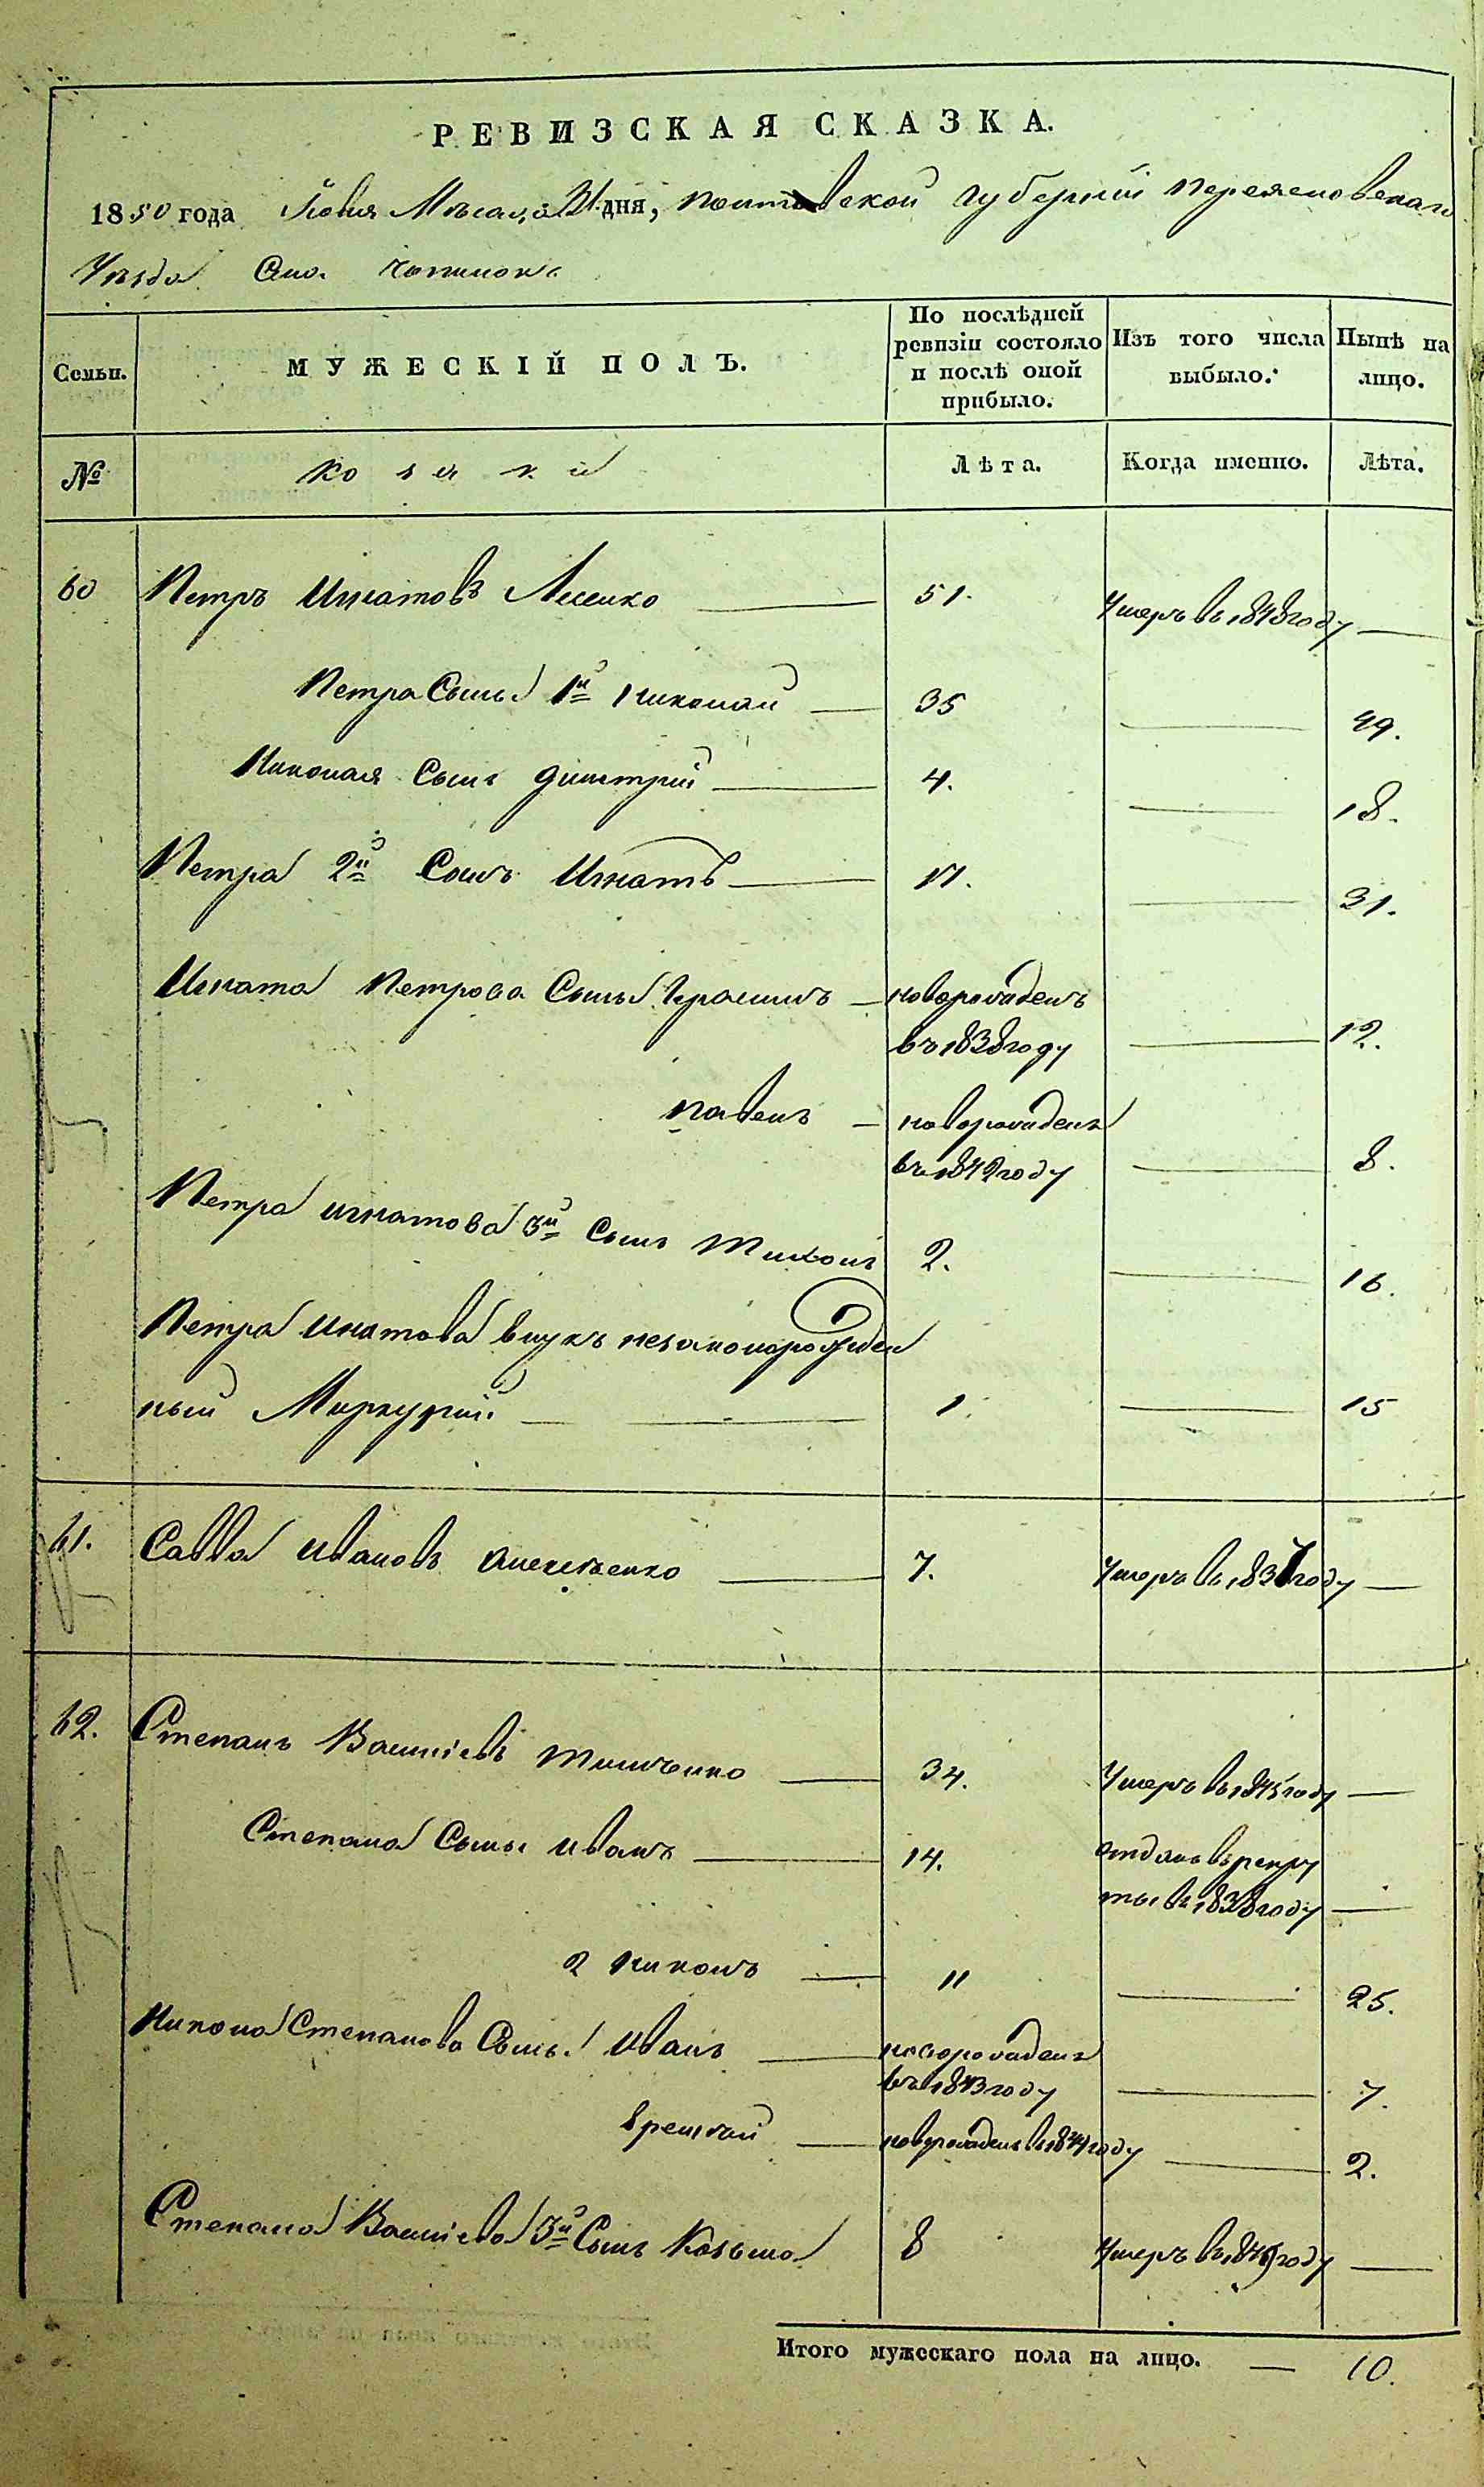 РЕВИЗСКАЯ СКАЗКА.
1850 года Іюня Месяца 31 дня, Полтавской губерніи Переяславскаго
Уезда Сло. Чопилокъ
Семьи. МУЖЕСКІЙ ПОЛЪ. По послѣдней ревизіи состояло и послѣ оной прибыло. Изъ того числа выбыло. Нынѣ на лицо.
№ козаки Лѣта. Когда именно. Лѣта.
60 Петръ Игнатовъ 51. Умеръ въ 1848 году —
Петра Сынъ 1й Николай — 35 — 49.
Николая Сынъ Димитрий — 4. — 18.
Петра 2й Сынъ Игнатъ — 17. — 31.
Игната Петрова Сынъ Герасимъ — новорожденъ
въ 1838 году — 12.
Павелъ — новорожденъ
въ 1842 году — 8.
Петра Игнатова 3й Сынъ Тихонъ 2. — 16.
Петра Игнатова внукъ незаконорожден
ный Меркурій — 1. — 15
61. Савва Ивановъ Алексѣенко — 7. Умеръ въ 1837 году —
62. Степанъ Василіевъ Тимченко — 34. Умеръ въ 1845 году —
Степана Сынъ Иванъ — 14. отданъ въ рекру
ты въ 1838 году —
2 Никонъ — 11 — 25.
Никона Степанова Сынъ Иванъ — новорожденъ
въ 1843 году — 7.
Еремѣй — новорожденъ в году — 2.
Степана Василіева 3й Сынъ Козьма 8 Умеръ въ году —
Итого мужескаго пола на лицо. — 10.